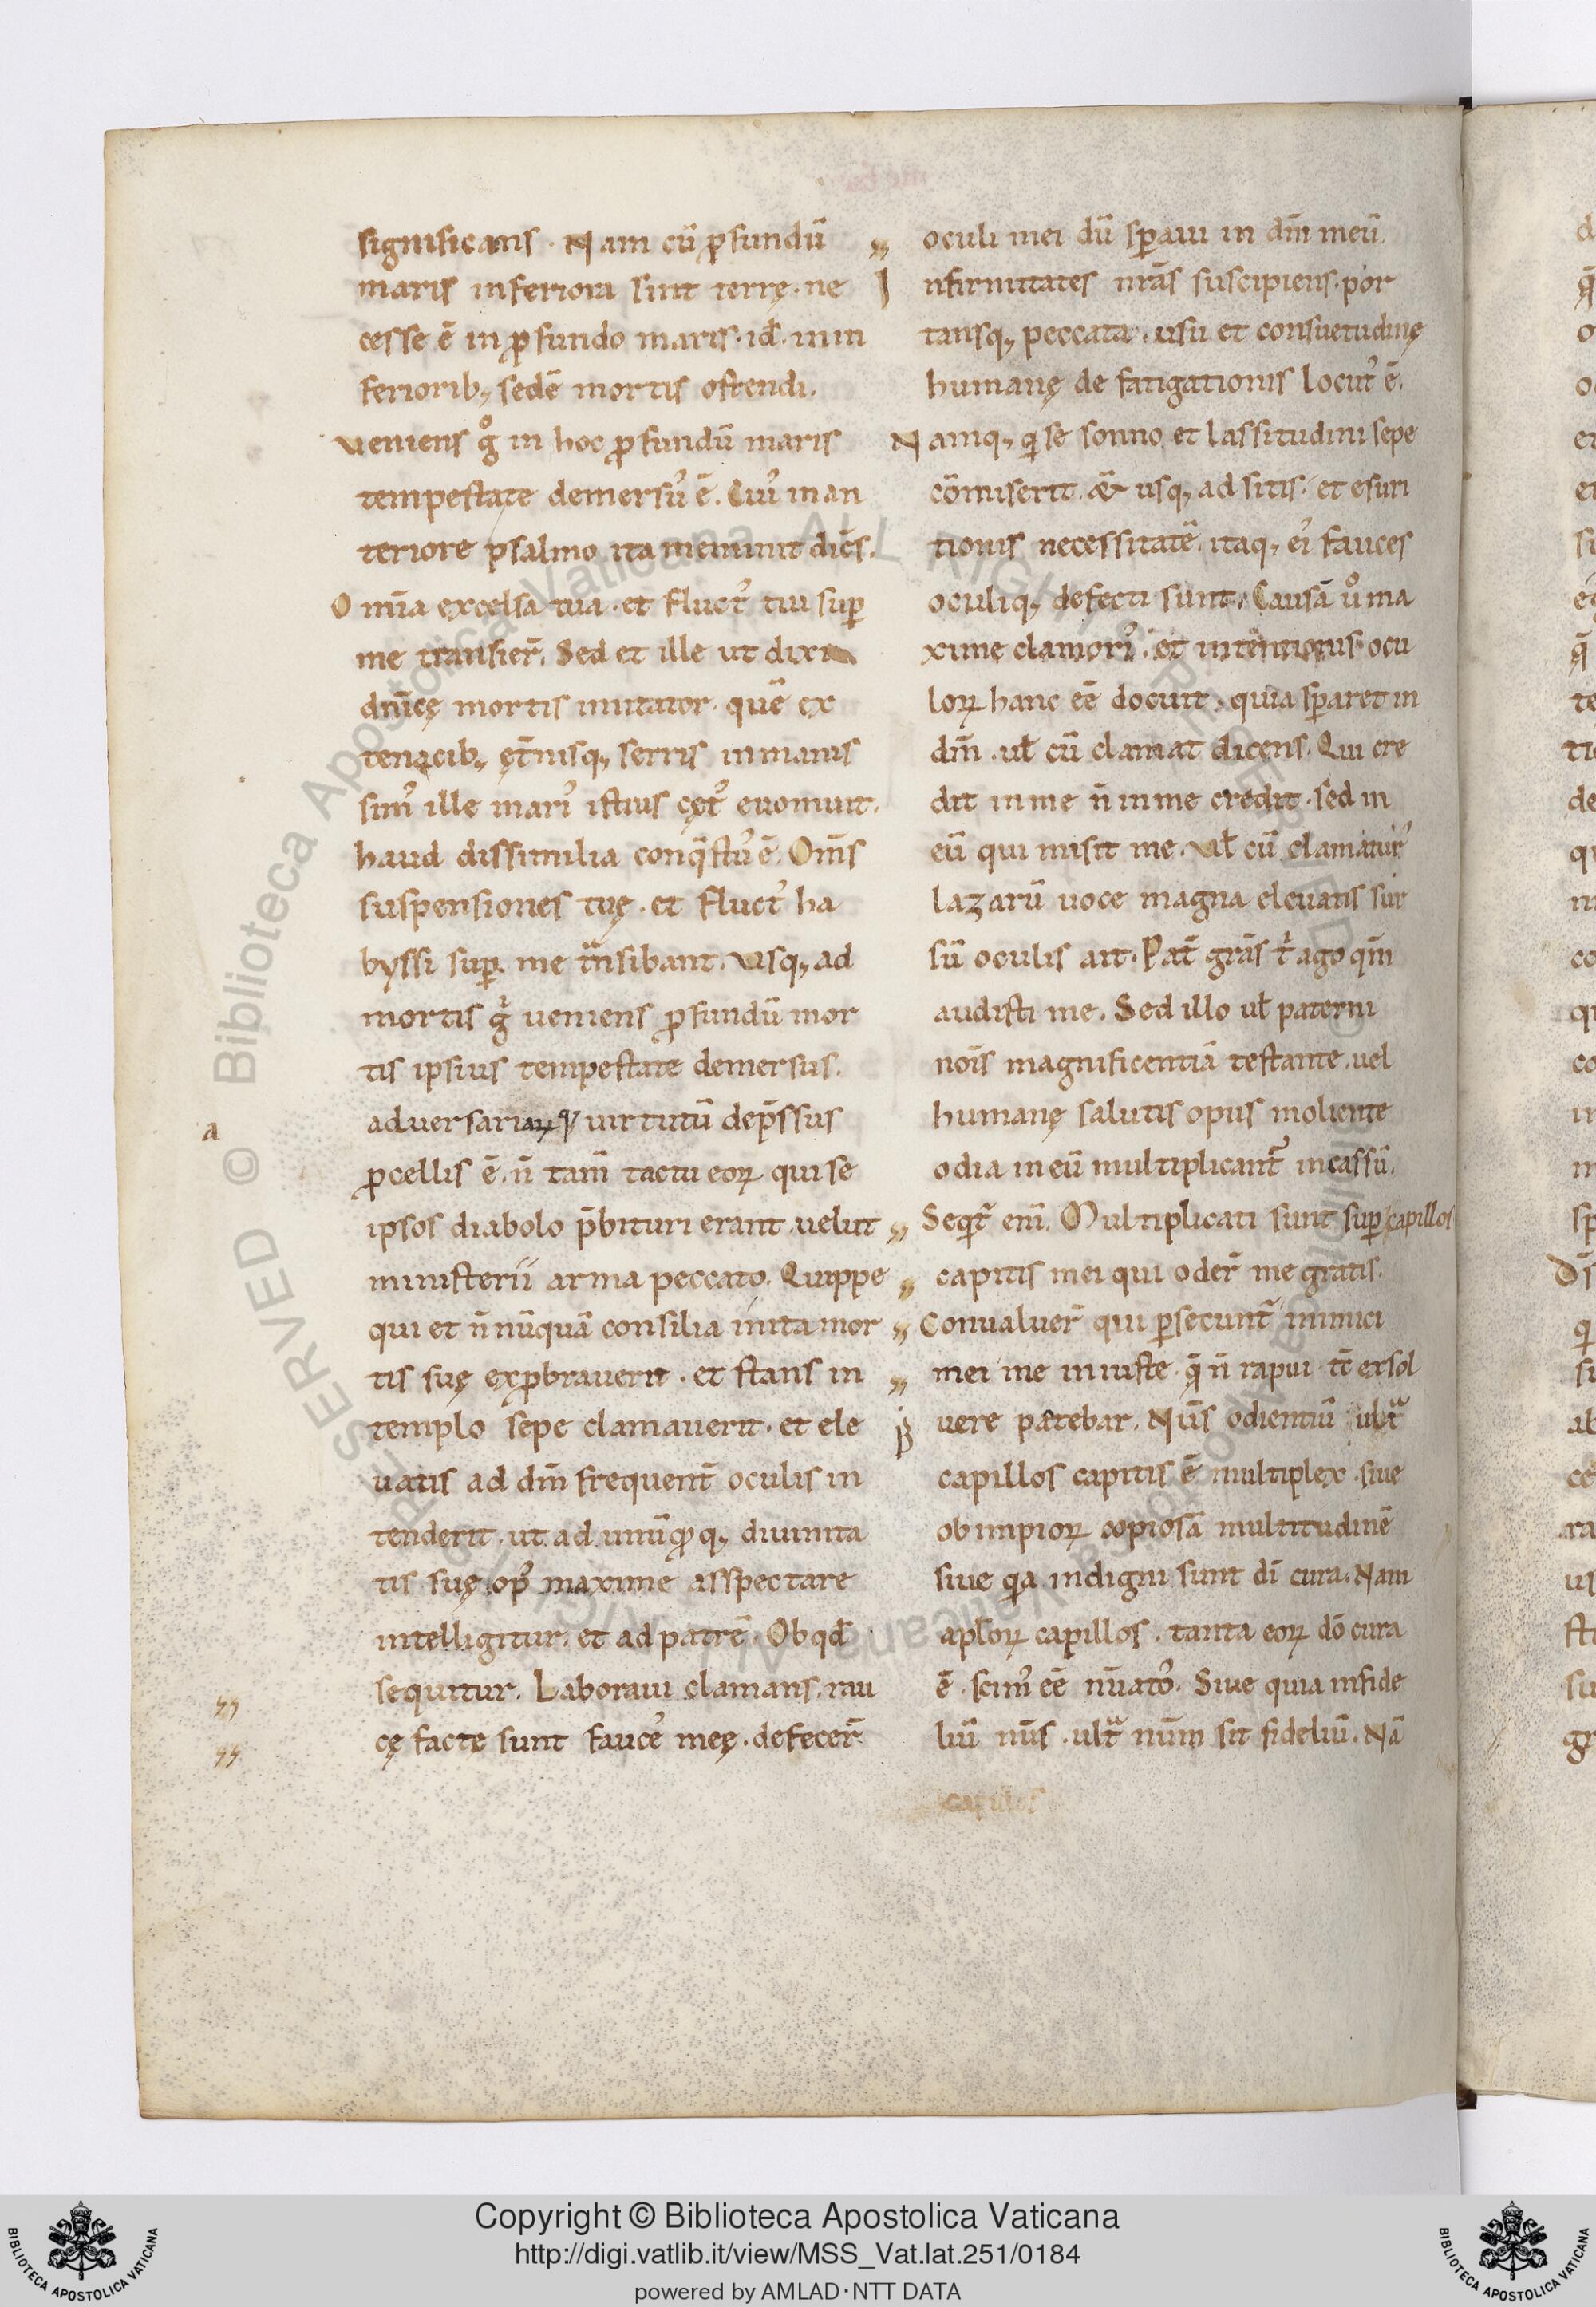 significans. Nam cū ꝓfundū
maris inferiora sint terrę. ne
cesse ē in ꝓfundo maris. id̄. in in
feriorib; sedē mortis ostendi.
Veniens gͦ in hoc ꝓfundū maris
tempestate demersuꝰ ē. Cuiꝰ in an
teriore psalmo ita meminit dicēs.
Om̄ia excelsa tua. et fluctꝰ tui suꝑ
me transier̄. Sed et ille ut dixi
dn̄icę mortis imitator. quē ex
tenacib; ęt̄nisq; serris inmanis
simꝰ ille mariꝰ istius cętꝰ euomuit.
haud dissimilia conq̄stuꝰ ē. Om̄s
suspensiones tuę. et fluctꝰ ha
byssi suꝑ me tͣnsibant. Vsq; ad
mortis gͥ ueniens ꝓfundū mor
tis ipsius tempestate demersus.
a
aduersariaꝝ uirtutū dep̄ssus
ꝓcellis ē. n̄ tam̄ tactu eoꝝ qui se
ipsos diabolo p̄bituri erant uelut
ministerii arma peccato. Quippe
qui et n̄ nūquā consilia inita mor
tis suę exꝓbrauerit. et stans in
templo sepe clamauerit. et ele
uatis ad dm̄ frequent̄ oculis in
tenderit. ut ad unūꝙq; diuinita
tis suę opꝰ maxime asspectare
intelligitur. et ad patrē. Ob qd̄
sequitur. Laboraui clamans. rau
cę facte sunt fauceꝰ meę. defecer̄
oculi mei dū sꝑaui in dm̄ meū.
Infirmitates nr̄as suscipiens. por
tansq; peccata. usu et consuetudinę
humanę de fatigationis locutꝰ ē.
Namq; qͥ se sonno et lassitudini sepe
cōmiserit. & usq; ad sitis. et esuri
tionis necessitatē. itaq; eiꝰ fauces
oculiq; defecti sunt. Causā uͦ ma
xime clamoriꝰ. et intentionis ocu
loꝝ hanc eē docuit. quia sꝑaret in
dm̄. ul̄ cū clamat dicens. Qui cre
dit in me n̄ in me credit. sed in
eū qui misit me. Vl̄ cū clamaturꝰ
lazarū uoce magna eleuatis sur
sū oculis ait. Pat̄ grās tͥ ago qm̄
audisti me. Sed illo ul̄ paterni
nōis magnificentiā testante. uel
humanę salutis opus moliente
odia in eū multiplicant̄ incassū.
Seqͥt̄ eni. Multiplicati sunt suꝑ capillos
capitis mei qui oder̄ me gratis.
Conualuer̄ qui ꝑsecunt̄ inimici
mei me iniuste. q̄ n̄ rapui tc̄ exsol
uere patebar. Nūs odientiū ultͣ
capillos capitis ē multiplex. siue
ob impioꝝ copiosā multitudinē
siue qͥa indigni sunt dī cura. Nam
apl̄oꝝ capillos. tanta eoꝝ dō cura
ē. scimꝰ eē nūatoꝰ. Siue quia infide
liū nūs. ultͣ nūm sit fideliū. Nā
Copyright © Biblioteca Apostolica Vaticana
http://digi.vatlib.it/view/MSS_Vat.lat.251/0184
powered by AMLAD·NTT DATA